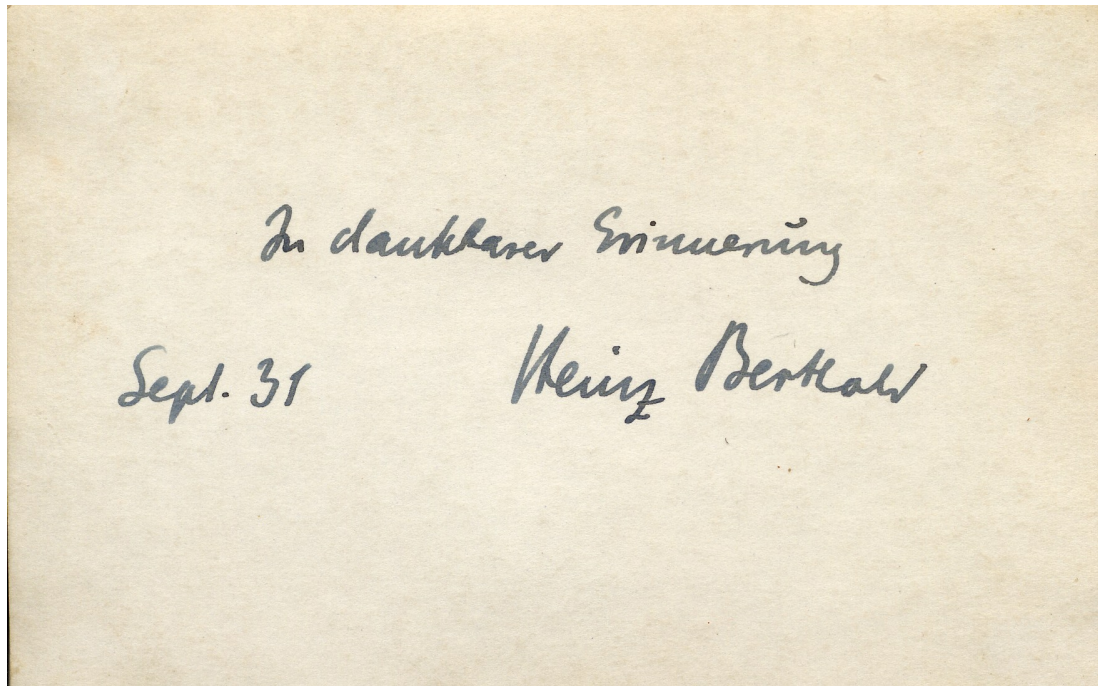 In dankbarer Erinnerung
Sept. 31 Heinz Berthold